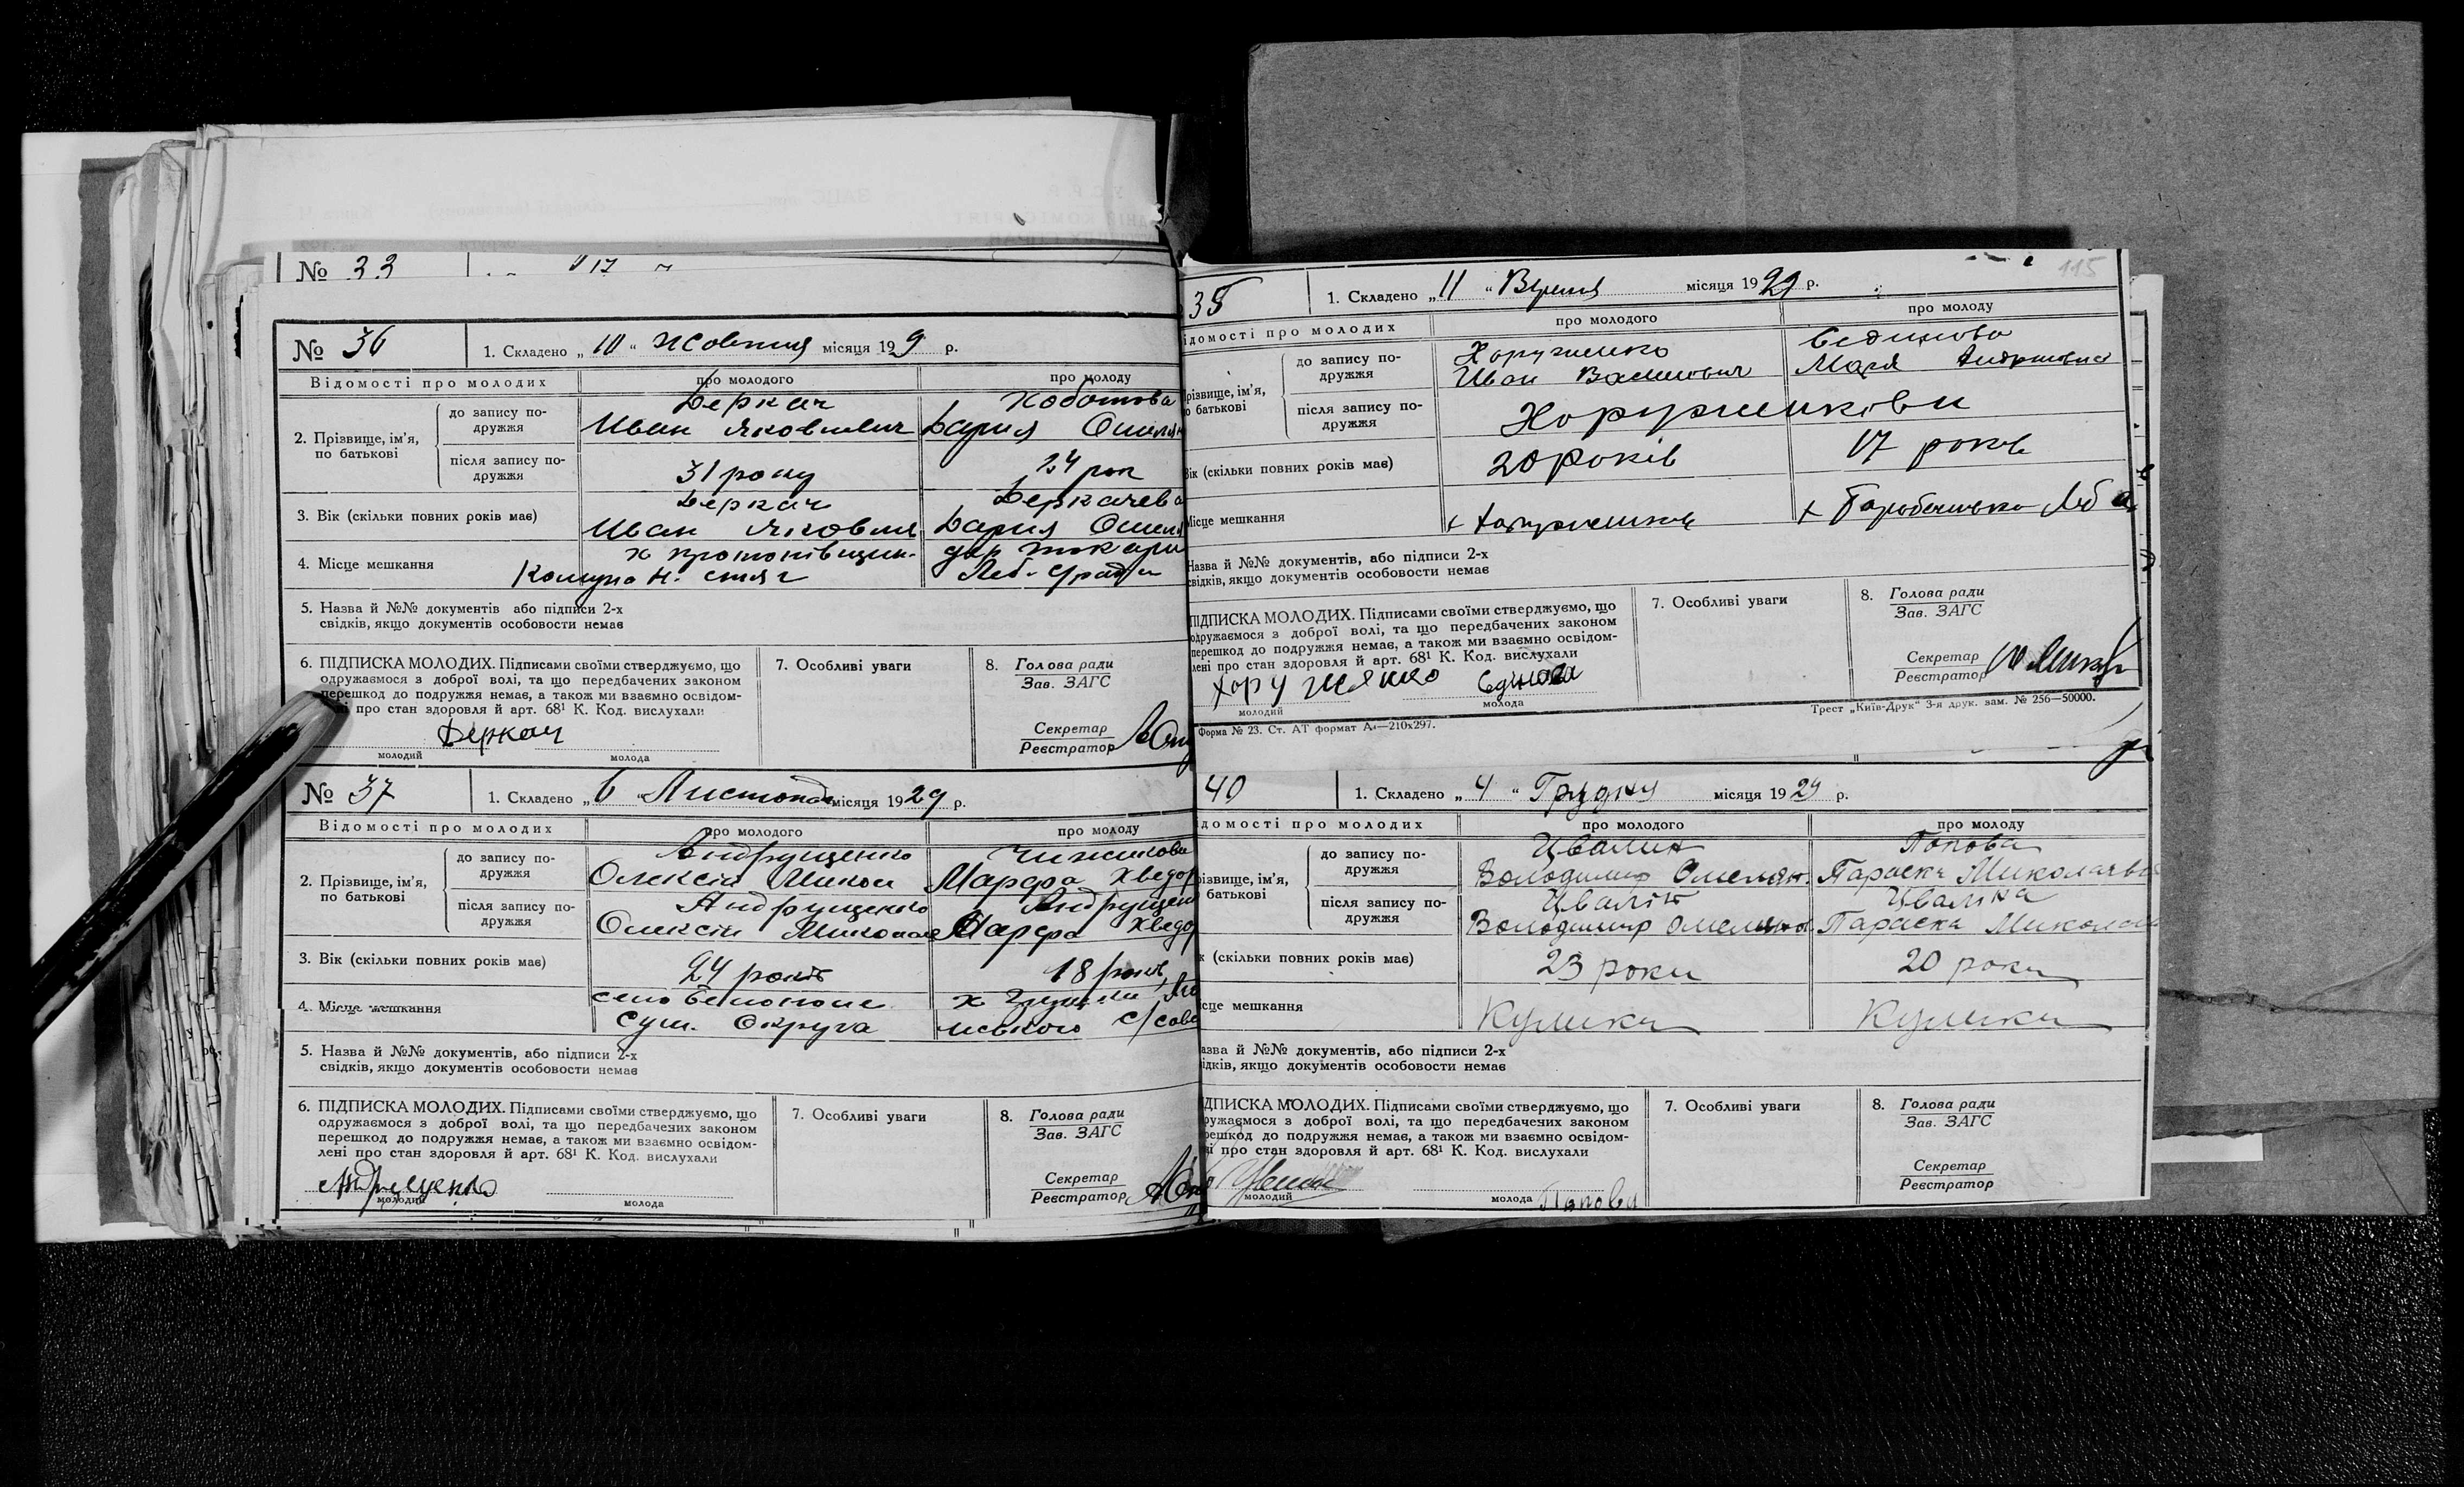 № 33
№ 36
1. Складено „ 10 “ жовтня місяця 19 9 р.
Відомості про молодих
про молодого
про молоду
2. Прізвище, ім'я, по батькові
до запису по-
дружжя
Деркач
Иван Яковлевич
Дария
після запису по-
дружжя
31 року
24 рок
3. Вік (скільки повних років має)
Деркач
Иван Яковлев
Деркачева
Дария
4. Місце мешкання
5. Назва й №№ документів або підписи 2-х
свідків, якщо документів особовости немає
6. ПІДПИСКА МОЛОДИХ. Підписами своїми стверджуємо, що
одружаємося з доброї волі, та що передбачених законом
перешкод до подружжя немає, а також ми взаємно освідом-
про стан здоровля й арт. 68¹ К. Код. вислухали
Деркач
молодий
молода
7. Особливі уваги
8. Голова ради
Зав. ЗАГС
Секретар
Реєстратор
№ 37
1. Складено „ 6 “ Листопад місяця 19 29 р.
Відомості про молодих
про молодого
про молоду
2. Прізвище, ім'я,
по батькові
до запису по-
дружжя
Андрущенко
Олексій Микол
Марфа Хведор
після запису по-
дружжя
Андрущенко
Олексій Миколае
Андрущен
Марфа Хведор
3. Вік (скільки повних років має)
24 років
18 років
4. Місце мешкання
село
Сум. Округа
5. Назва й №№ документів, або підписи 2-х
свідків, якщо документів особовости немає
6. ПІДПИСКА МОЛОДИХ. Підписами своїми стверджуємо, що
одружаємося з доброї волі, та що передбачених законом
перешкод до подружжя немає, а також ми взаємно освідом-
лені про стан здоровля й арт. 68¹ К. Код. вислухали
Андрущенко
молодий
молода
7. Особливі уваги
8. Голова ради
Зав. ЗАГС
Секретар
Реєстратор
115
35
1. Складено „ 11 “ місяця 19 29 р.
ідомості про молодих
про молодого
про молоду
різвище, ім'я,
о батькові
до запису по-
дружжя
Хоруженко
Иван Васильович
Єдинова
Мария Андриевна
після запису по-
дружжя
Хоруженкови
Вік (скільки повних років має)
20 років
17 років
Місце мешкання
Назва й №№ документів, або підписи 2-х
свідків, якщо документів особовости немає
ПІДПИСКА МОЛОДИХ. Підписами своїми стверджуємо, що
одружаємося з доброї волі, та що передбачених законом
перешкод до подружжя немає, а також ми взаємно освідом-
лені про стан здоровля й арт. 68¹ К. Код. вислухали
молодий
молода
7. Особливі уваги
8. Голова ради
Зав. ЗАГС
Секретар
Реєстратор
Форма № 23. Ст. АТ формат А₄—210х297.
Трест „Київ-Друк“ 3-я друк. зам. № 256—50000.
40
1. Складено „ 4 “ Грудня місяця 19 29 р.
домості про молодих
про молодого
про молоду
різвище, ім'я,
батькові
до запису по-
дружжя
Цвалин
Володимир Омелян.
Попова
Параска Миколаєв
після запису по-
дружжя
Цвалін
Володимир Омелян
Цваліна
Параска Миколаєв
к (скільки повних років має)
23 роки
20 роки
сце мешкання
Кулики
Кулики
азва й №№ документів, або підписи 2-х
ідків, якщо документів особовости немає
ДПИСКА МОЛОДИХ. Підписами своїми стверджуємо, що
ружаємося з доброї волі, та що передбачених законом
решкод до подружжя немає, а також ми взаємно освідом-
і про стан здоровля й арт. 68¹ К. Код. вислухали
молодий
молода Попова
7. Особливі уваги
8. Голова ради
Зав. ЗАГС
Секретар
Реєстратор